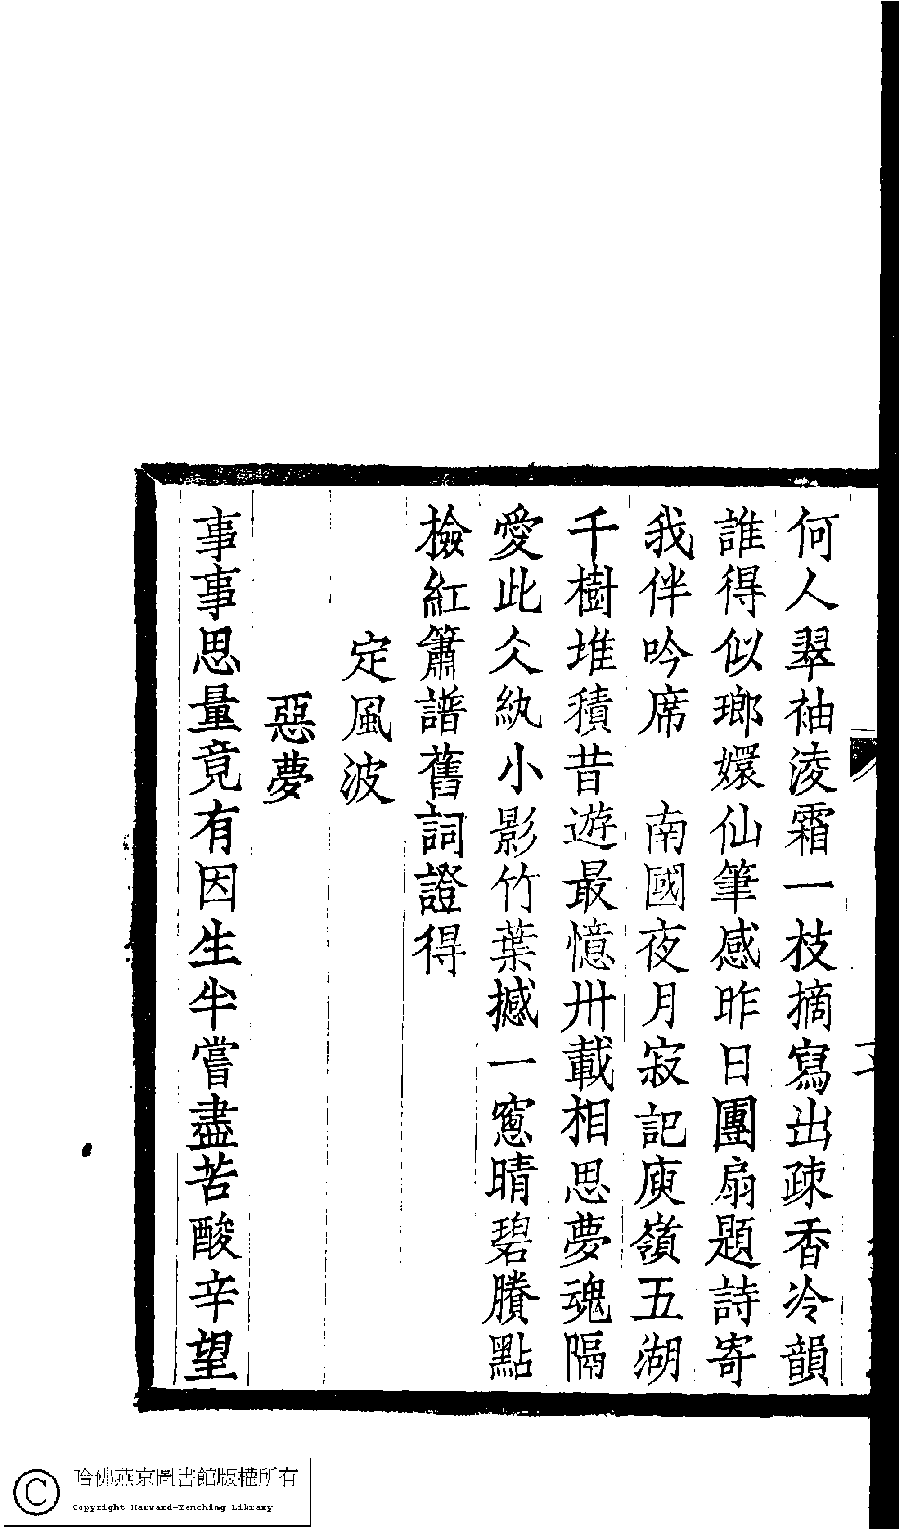 何人翠袖淩霜一枝摘寫出疎香冷韻
誰得似瑯嬛仙筆感昨日團扇題詩寄
我伴吟席　南國夜月寂記庾嶺五湖
千樹堆積昔遊最憶卅載相思夢魂隔
愛此仌紈小影竹葉撼一窻晴碧賸點
檢紅簫譜舊詞證得
定風波
惡夢
事事思量竟有因生半嘗盡苦酸辛望
哈佛燕京圖書館版權所有
Copyright Harvard-Yenching Library